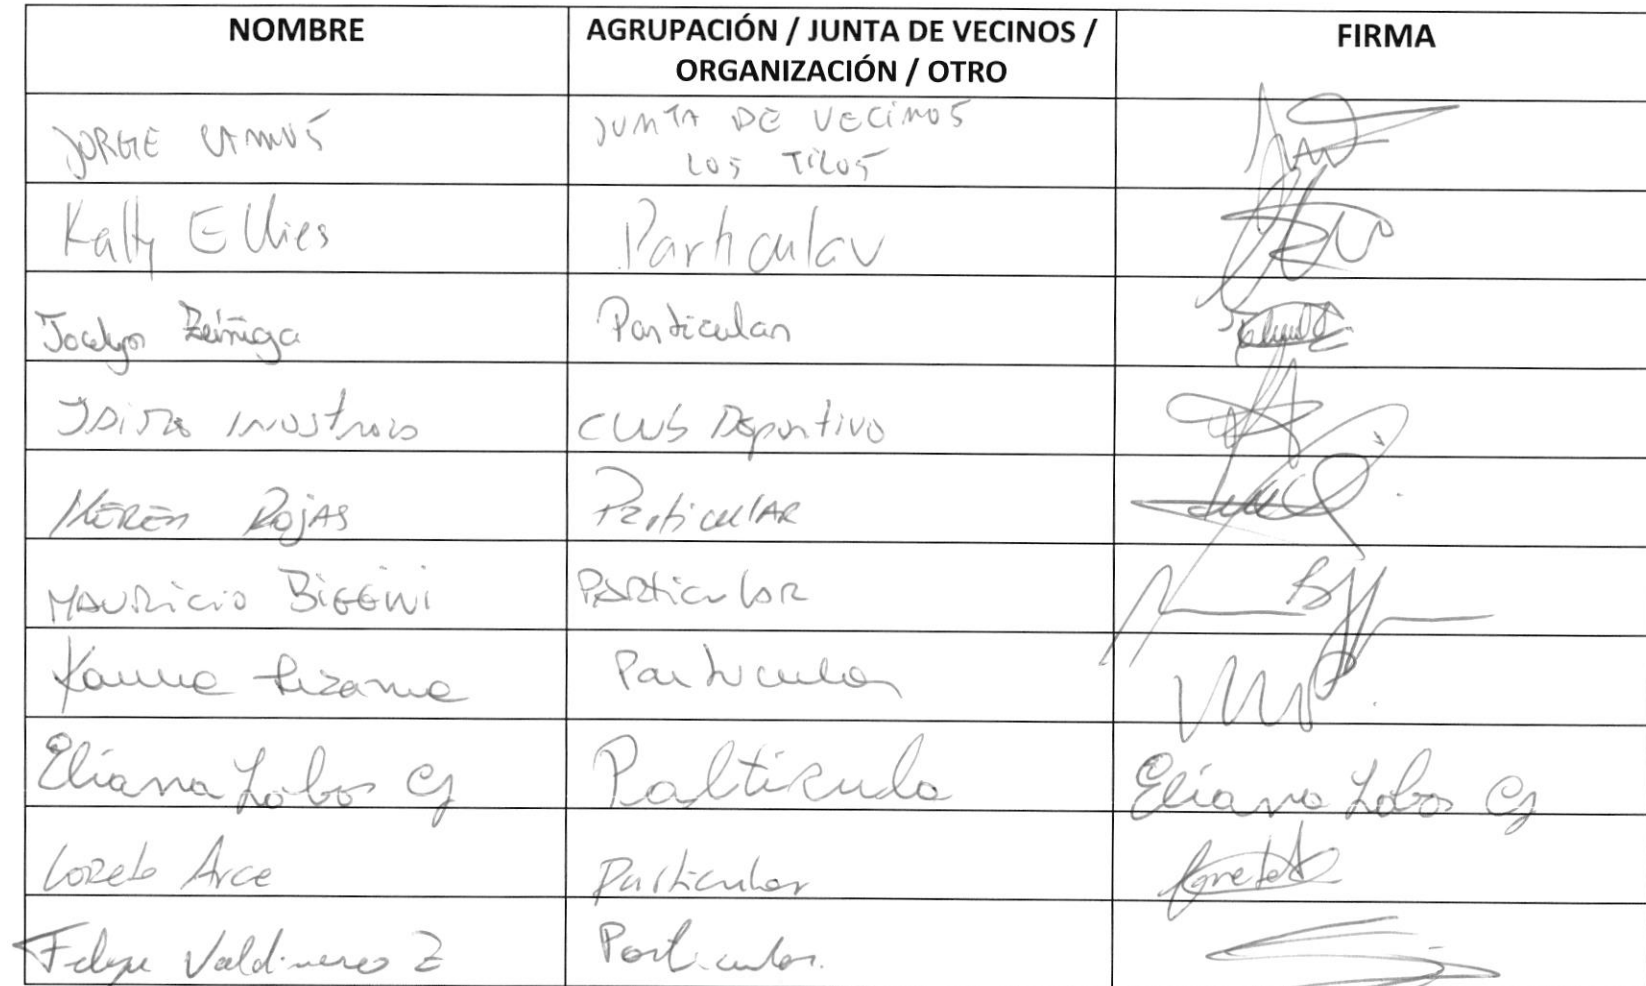 NOMBRE
AGRUPACIÓN / JUNTA DE VECINOS /
ORGANIZACIÓN / OTRO
FIRMA
JORGE
JUNTA DE VECINOS
LOS TILOS
Katty Ellies
Particular
Jocelyn Zúñiga
Particular
Inostroza
CLUB Deportivo
KEREN ROJAS
PARTICULAR
MAURICIO BIGGINI
PARTICULAR
Lizama
Particular
Eliana Lobos CJ
Palticula
Eliana Lobos CJ
Loreto Arce
Particular
Felipe Z
Particular.